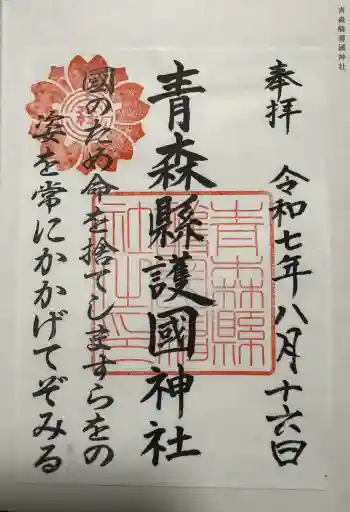 青森縣護國神社
奉拝
令和七年八月十六日
青森縣護國神社
國のため命を捨てしますらをの
姿を常にかかげてぞみる
青森縣護國神社之印